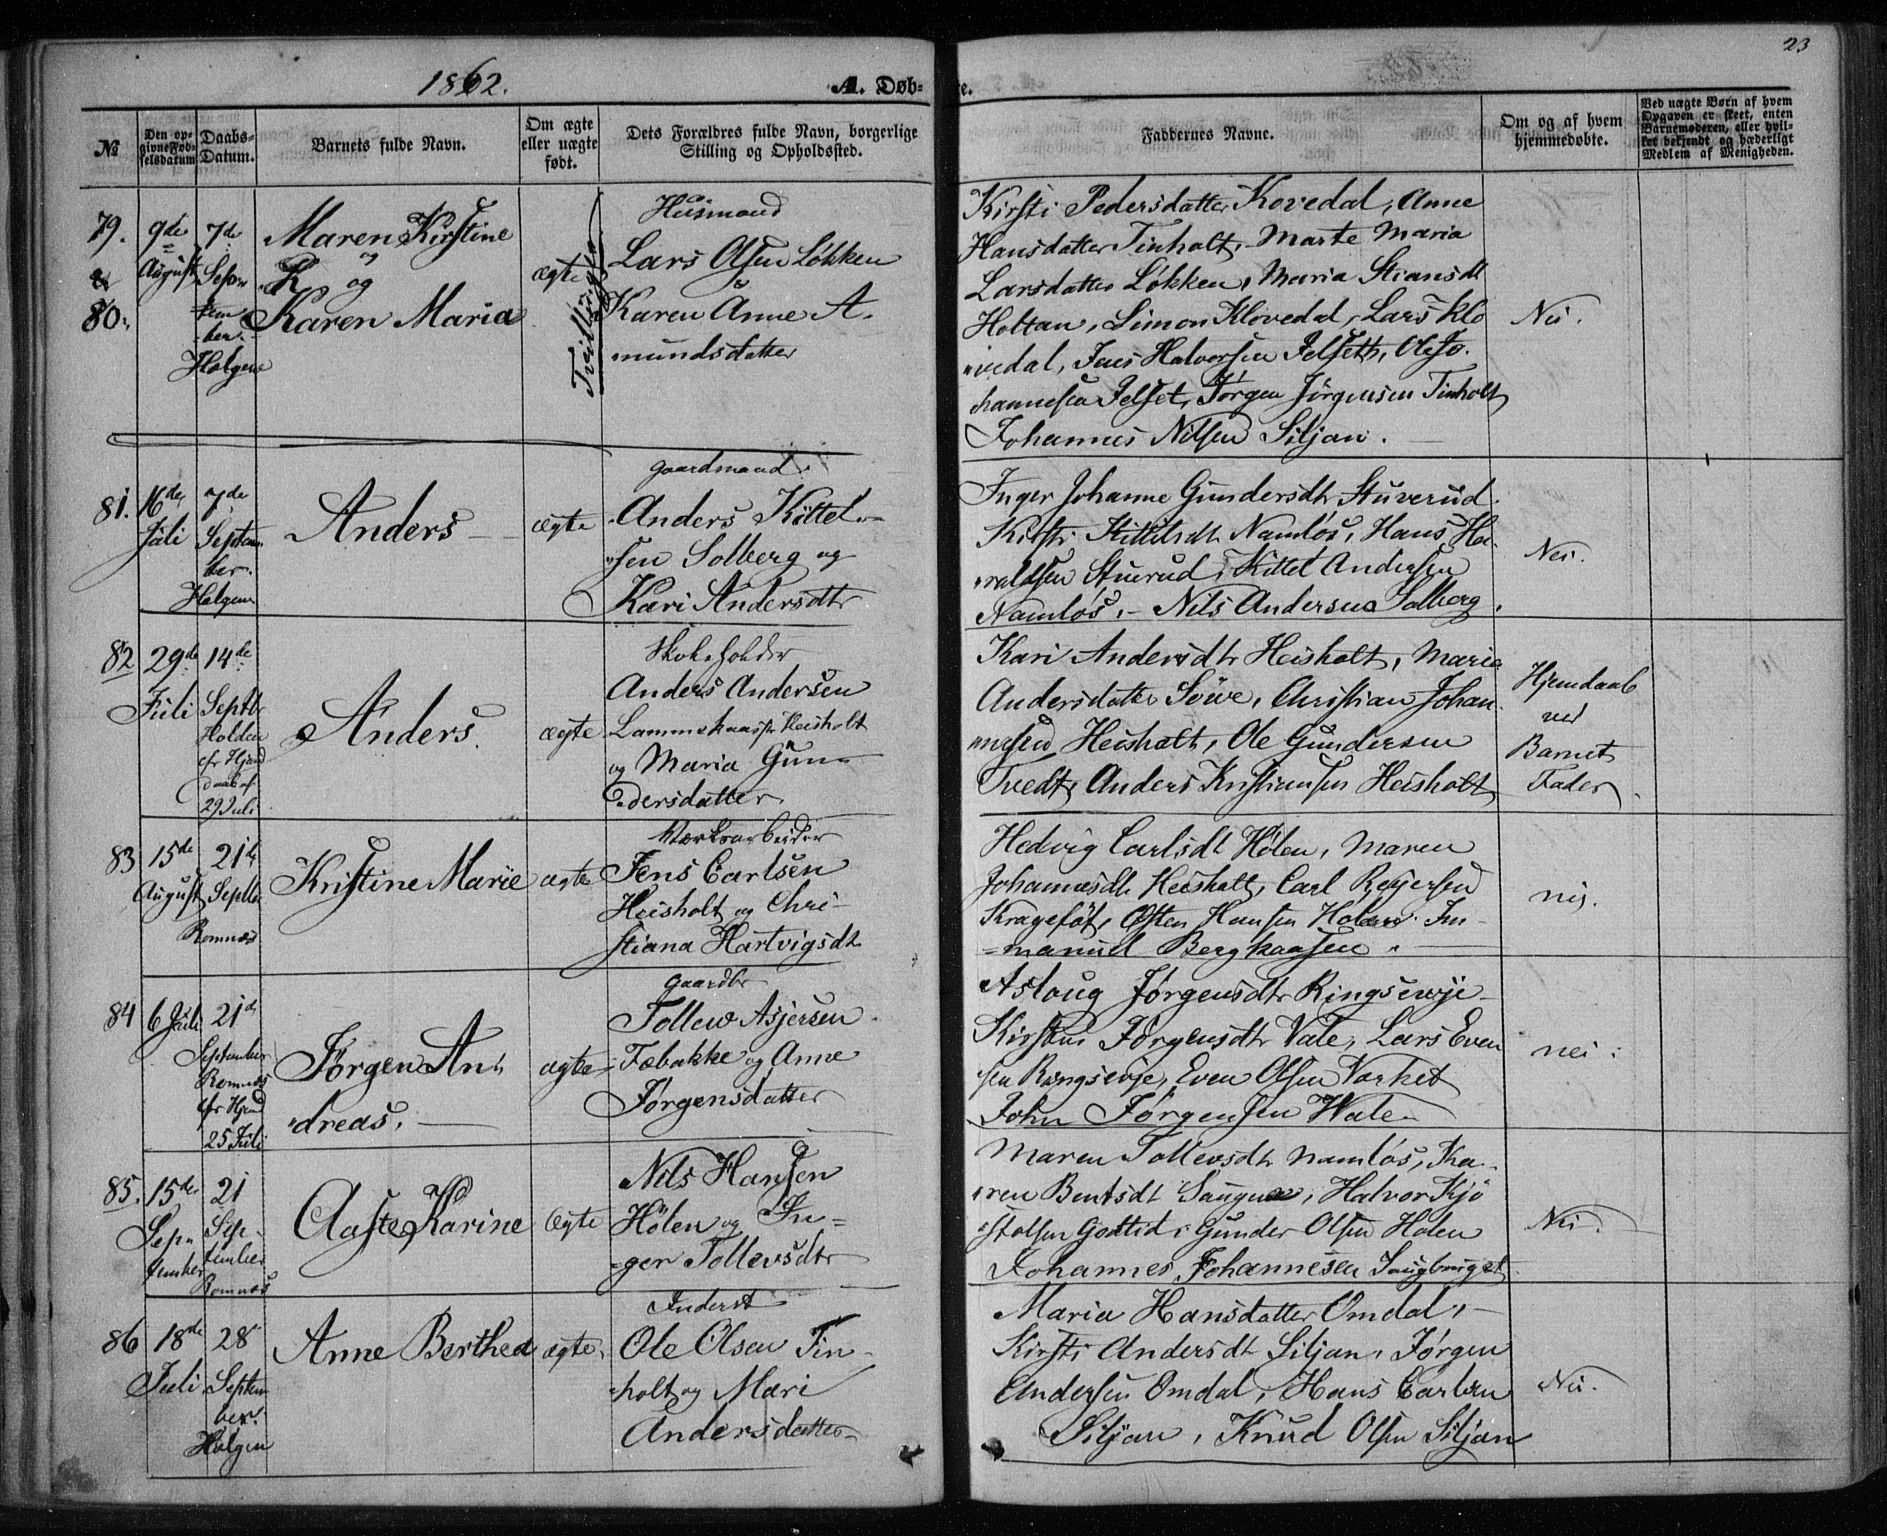 1862.
A. Døb-
te.
23
№
Den op-
givne Fød-
selsdatum
Daabs-
Datum.
Barnets fulde Navn.
Om ægte
eller uægte
født.
Dets Forældres fulde Navn, borgerlige
Stilling og Opholdssted.
Faddernes Navne.
Om og af hvem
hjemmedøbte.
Ved uægte Børn af hvem
Opgaven er skeet, enten
Barnemoderen, eller hvil-
ket bekjendt og hæderligt
Medlem af Menigheden.
79.
&
80.
9de
August
7de
Sep-
tem-
ber.
Holgen
Maren Kirstine
og
Karen Maria
ægte
Tvillinger
Husmand
Lars Olsen Løkken
Karen Anne A-
mundsdatter
Kirsti Pedersdatter Kovedal, Anne
Hansdatter Tinholt, Marte Maria
Larsdatter Løkken, Maria Stiansdt
Holtan, Simon Klovedal, Lars Klo
vedal, Jens Halvorsen Jelseth, Ole Jo-
hannesen Jelset, Jørgen Jørgensen Tinholt
Johannes Nilsen Siljan.
Nei.
81.
16de
Juli
7de
Septem-
ber.
Holgen
Anders
ægte
Gaardmand
Anders Kittel-
sen Solberg og
Kari Andersdtr
Inger Johanne Gundersdtr Stuverud
Kirsti Kittilsdt Namløs, Hans Ha-
raldsen Stuerud, Kittel Andersen
Namløs, Nils Andersen Solberg.
Nei.
82
29de
Juli
14de
Septbr
Holden
cfr Hjem
daab af
29 Juli
Anders.
ægte
Skoleholder
Anders Andersen
Lammehaas Heisholt
og Maria Gun-
dersdatter.
Kari Andersdtr Heisholt, Maria
Andersdatter Søve, Christian Johan-
nesen Heisholt, Ole Gundersen
Tvedt, Anders Kristiansen Heisholt
Hjemdaab
ved
Barnets
Fader
83
15de
August
21de
Septbr
Romnæs
Kristine Marie
ægte
Værksarbeider
Jens Carlsen
Heisholt og Chri-
stiana Hartvigsdt
Hedvig Carlsdt Hølen, Maren
Johannesdtr Heisholt, Carl Reiersen
Krageföt, Østen Hansen Holden. Im-
manuel Berghaasen.
nei.
84
6 Juli
21de
September
Romnæs
cfr Hjemd
25 Juli
Jørgen An-
dreas.
ægte
Gaardbr
Tollew Asjersen
Fæbakke og Anne
Jørgensdatter
Aslaug Jørgensdtr Ringsevje
Kirstine Jørgensdtr Vale, Lars Even
sen Ringsevje, Even Olsen Varket
John Jørgensen Wale
nei.
85.
15de
Sep-
tember
21
Sep-
tember
Romnæs
Aaste Karine
Ægte
Nils Hansen
Hølen og In-
ger Tollevsdtr
Maren Tollevsdtr Namløs, Ka-
ren Bentsdt Saugen, Halvor Kjö
stolsen Godtid, Gunder Olsen Holen
Johannes Johannesen Saugbruget
Nei.
86
18de
Juli
28
Septem
ber.
Holgen
Anne Berthea
ægte.
Inderst
Ole Olsen Tin-
holt og Mari
Andersdatter
Maria Hansdatter Omdal,
Kirsti Andersdt Siljan, Jørgen
Andersen Omdal, Hans Carlsen
Siljan, Knud Olsen Siljan
Nei.